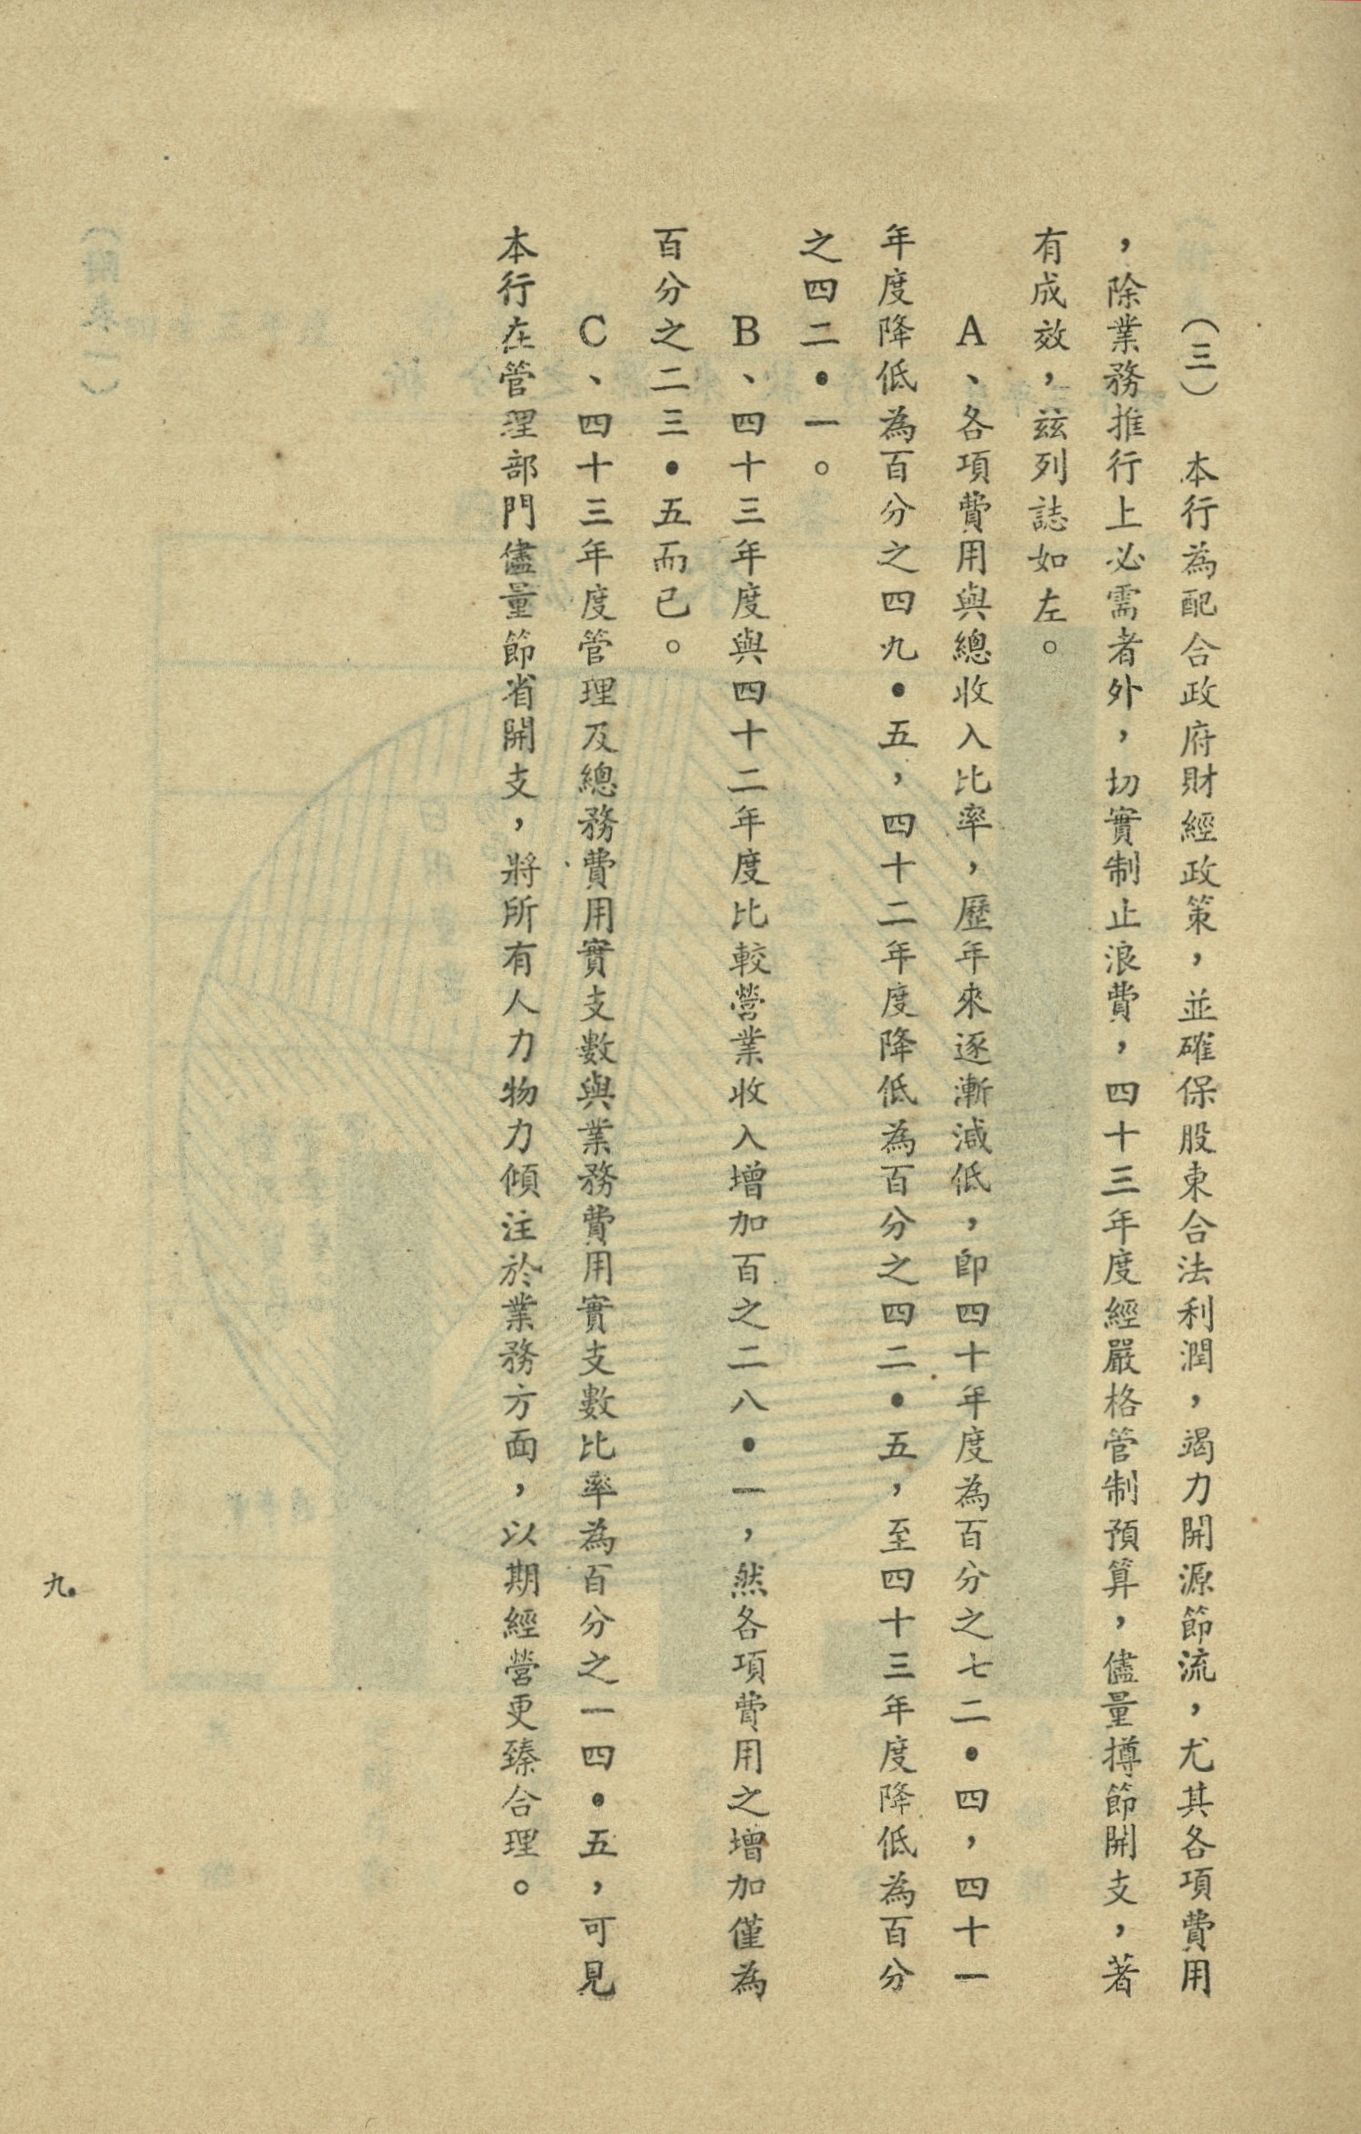 （三）　本行為配合政府財經政策，並確保股東合法利潤，竭力開源節流，尤其各項費用
，除業務推行上必需者外，切實制止浪費，四十三年度經嚴格管制預算，儘量撙節開支，著
有成效，茲列誌如左。
A、各項費用與總收入比率，歷年來逐漸減低，卽四十年度為百分之七二•四，四十一
年度降低為百分之四九•五，四十二年度降低為百分之四二•五，至四十三年度降低為百分
之四二•一。
B、四十三年度與四十二年度比較營業收入增加百之二八•一，然各項費用之增加僅為
百分之二三•五而已。
C、四十三年度管理及總務費用實支數與業務費用實支數比率為百分之一四•五，可見
本行在管理部門儘量節省開支，將所有人力物力傾注於業務方面，以期經營更臻合理。
九